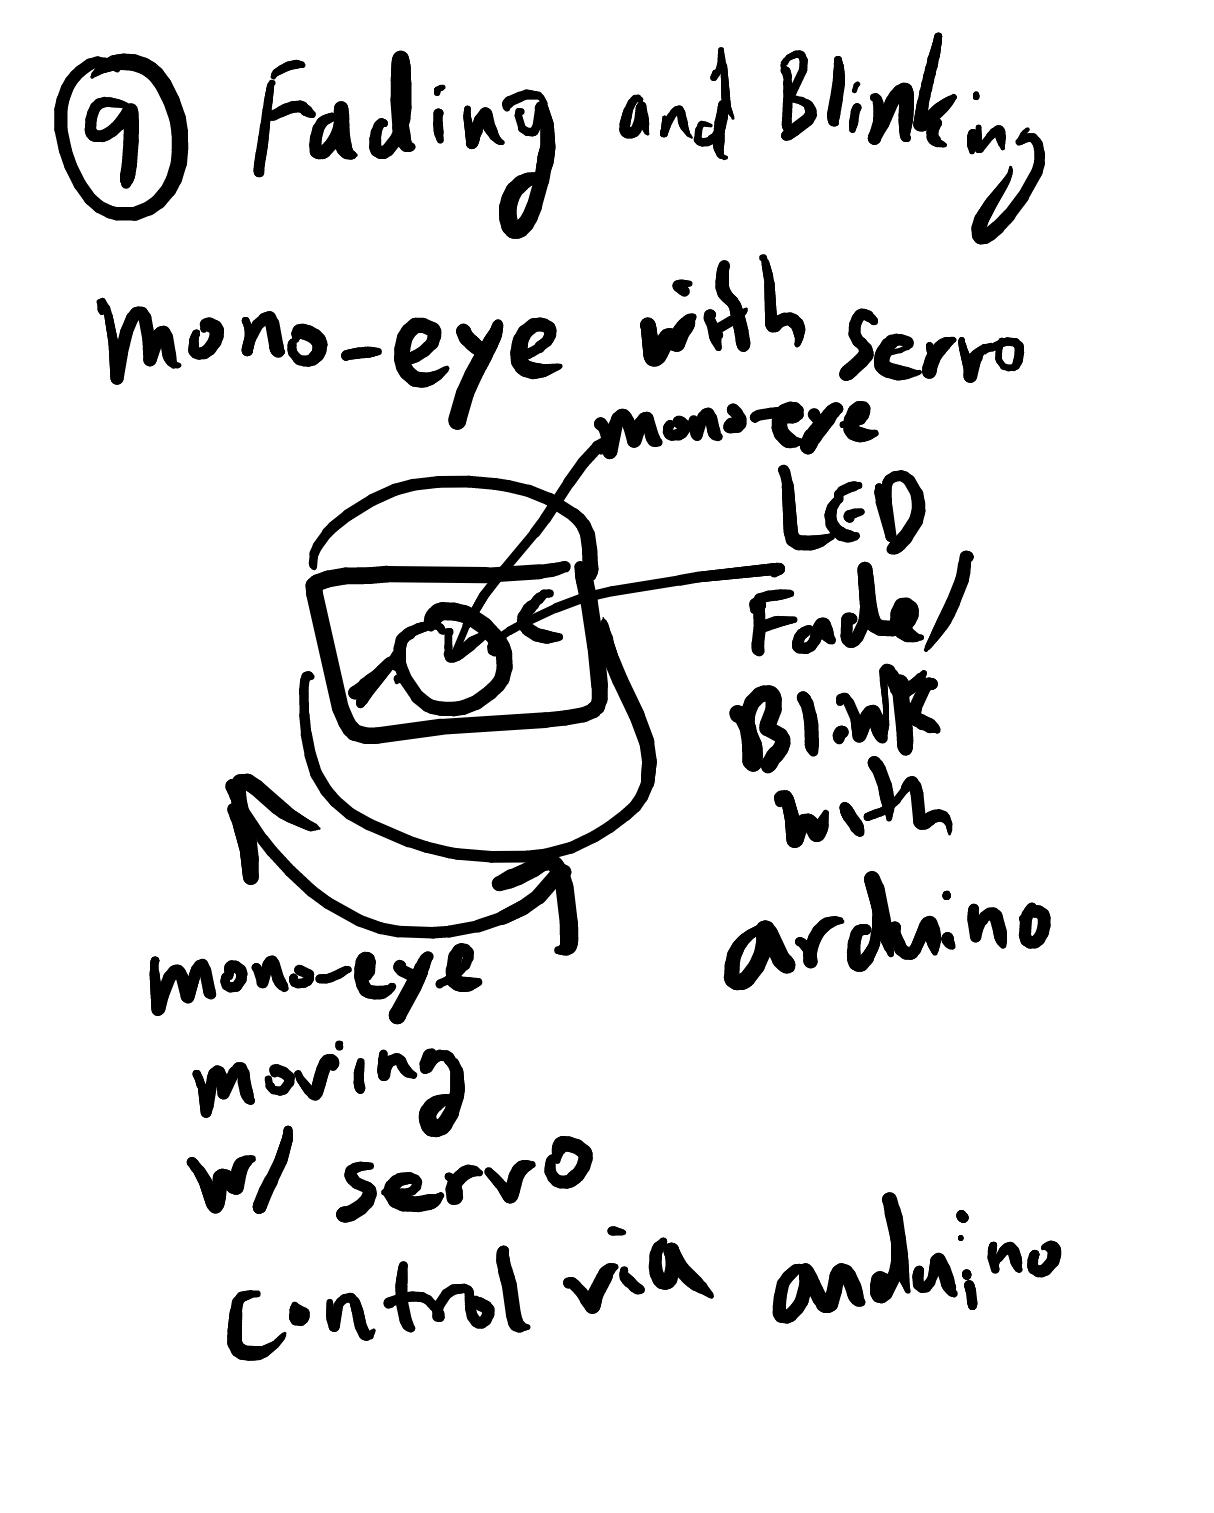 9 Fading and Blinking
mono-eye with servo
mono-eye
LED
Fade/
Blink
with
arduino
mono-eye
moving
w/ servo
control via arduino